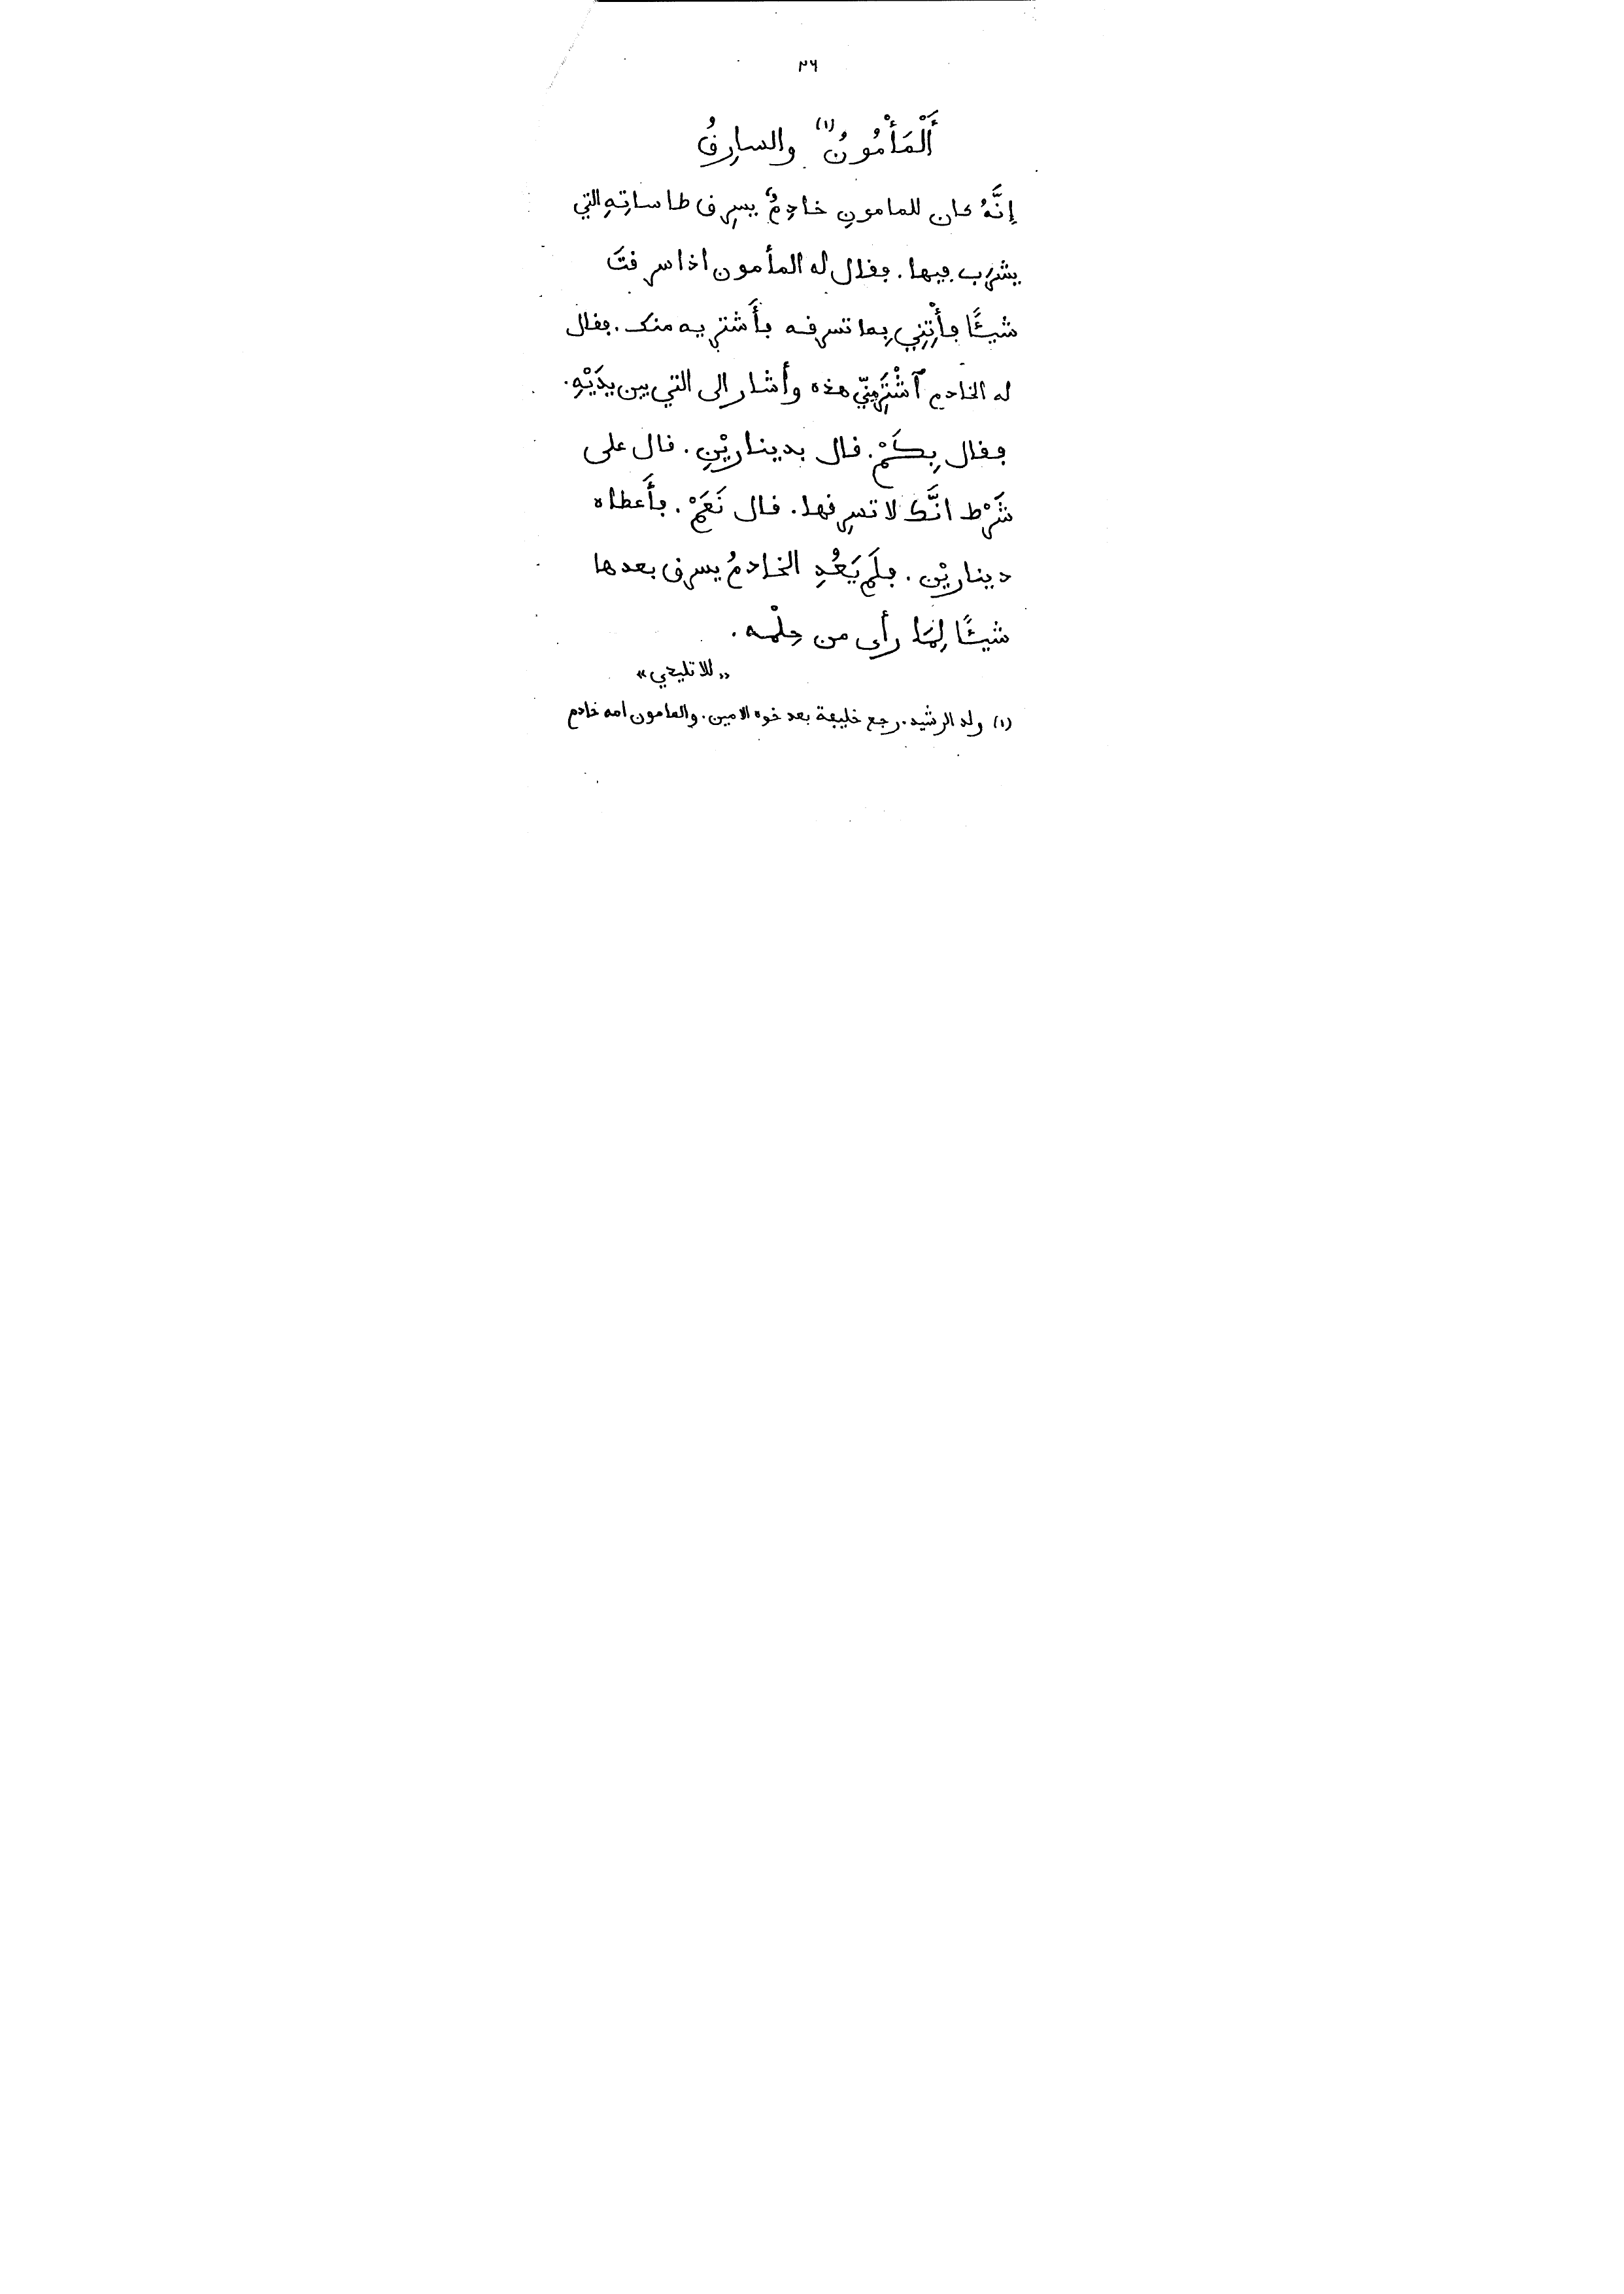 أَلْمَأْمُونُ (١) والسارِقُ
إِنَّهُ كان للمامونِ خادِمٌ يسرِق طاساتِهِ التي
يشرَب فيها. فقال له المأمون اذا سرقتَ
شيئًا فأْتِنِي بِما تسرقه فأَشتريه منك. فقال
له الخادم ٱشْتَرِمِنِّي هذه وأشار الى التي بين يدَيْهِ.
فقال بِكَمْ. قال بدينارَيْنِ. قال على
شَرْط انَّك لا تسرِقها. قال نَعَمْ. فأَعطاه
دينارَيْن. فلَم يَعُدِ الخادمُ يسرق بعدها
شيئًا لِمَا رأى من حِلْمه.
«للاتليدي»
(١) ولد الرشيد. رجع خليفة بعد خوه الامين. والمامون امه خادم